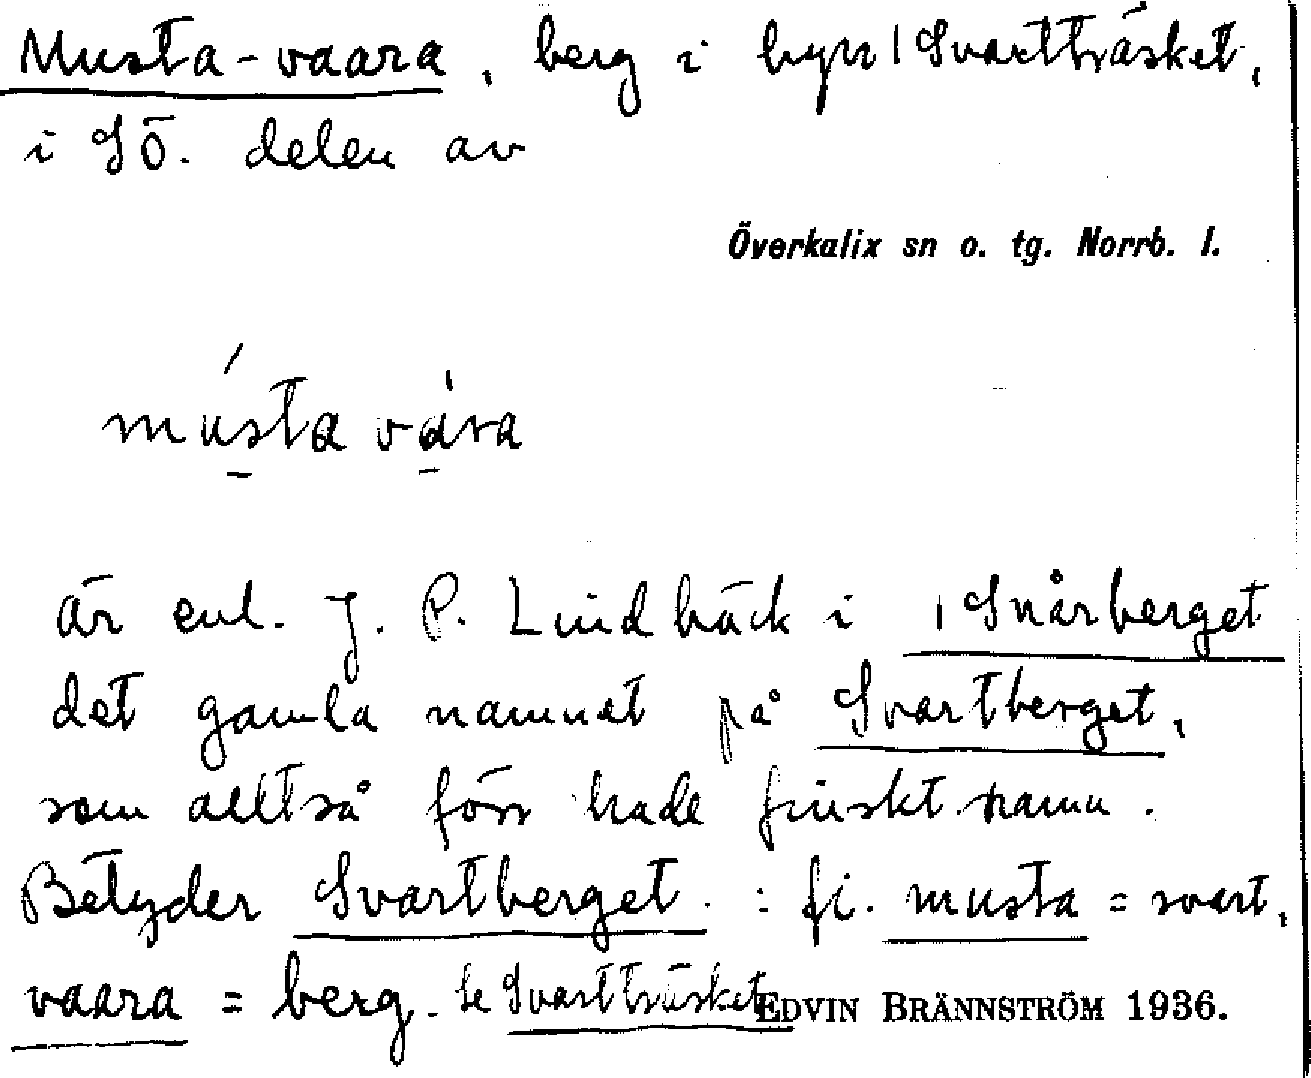 Musta-vaara, berg i byn Svartträsket,
i SÖ. delen av
Överkalix sn o. tg. Norrb. l.
músta vára
är enl. J. P. Lindbäck i Snårberget
det gamla namnet på Svartberget,
som alltså förr hade finskt namn.
Betyder Svartberget. : fi. musta = svart,
vaara = berg. Se Svartträsket
EDVIN BRÄNNSTRÖM 1936.